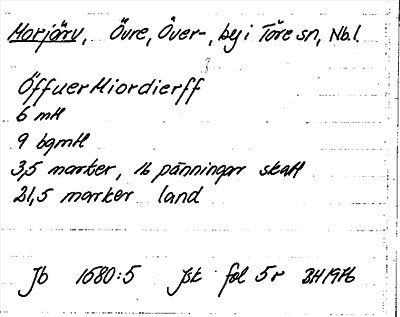 Morjärv, Övre, Över-, by i Töre sn, Nb.l.
Öffuer Hiordierff
6 mH
9 bgmH
3,5 marker, 16 pänningar skatt
21,5 marker land
Jb 1680:5 Jsk fol 5r BH 1976